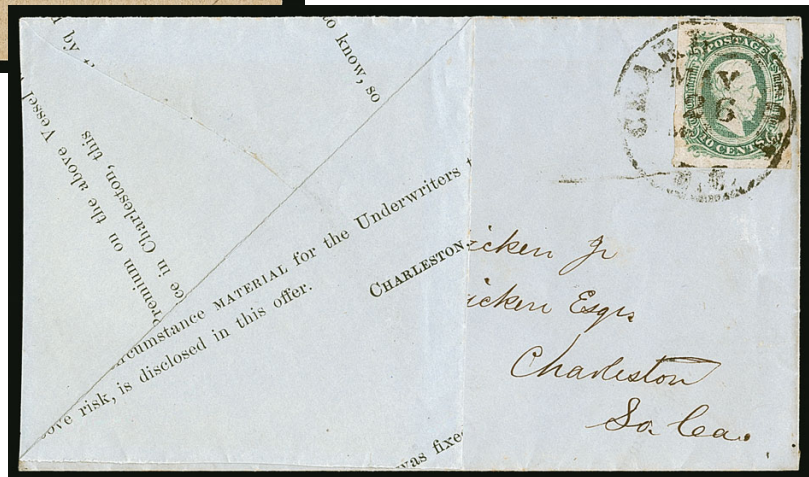 to know, so
by
Premium on the above Vessel
ce in Charleston, this
rcumstance MATERIAL for the Underwriters t
ove risk, is disclosed in this offer.
CHARLESTON
was fixe
POSTAGE
MAY
26
10 CENTS
icken Jr
icken Esqr.
Charleston
So. Ca.